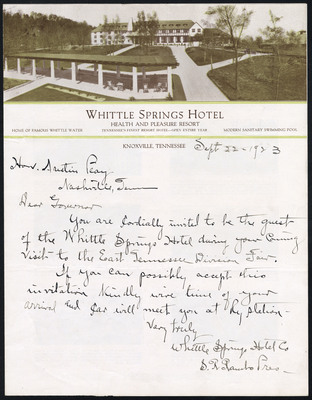 WHITTLE SPRINGS HOTEL
HEALTH AND PLEASURE RESORT
HOME OF FAMOUS WHITTLE WATER
TENNESSEE'S FINEST RESORT HOTEL—OPEN ENTIRE YEAR
MODERN SANITARY SWIMMING POOL
KNOXVILLE, TENNESSEE
Sept 22-1923
Hon. Austin Peay
Nashville, Tenn
Dear Governor
You are cordially invited to be the guest
of the Whittle Springs Hotel during your coming
visit to the East Tennessee Division Fair.
If you can possibly accept this
invitation kindly wire time of your
arrival and car will meet you at Ry station-
Very truly
Whittle Springs Hotel Co
Pres-